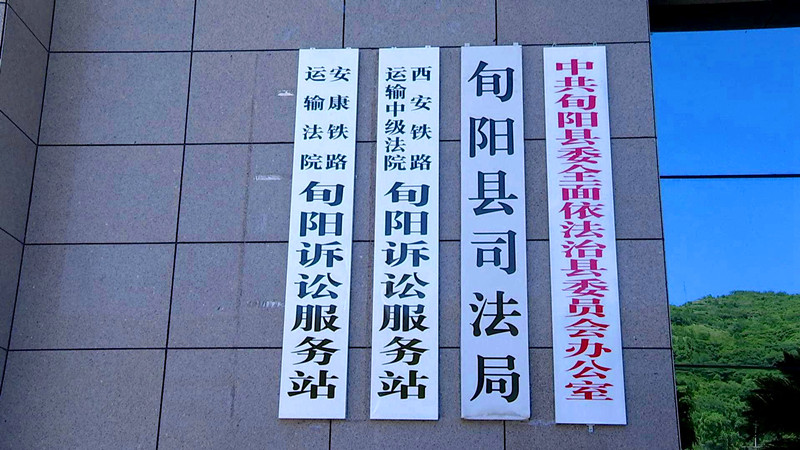 中共旬阳县委全面依法治县委员会办公室
旬阳县司法局
西安铁路
运输中级法院
旬阳诉讼服务站
安康铁路
运输法院
旬阳诉讼服务站